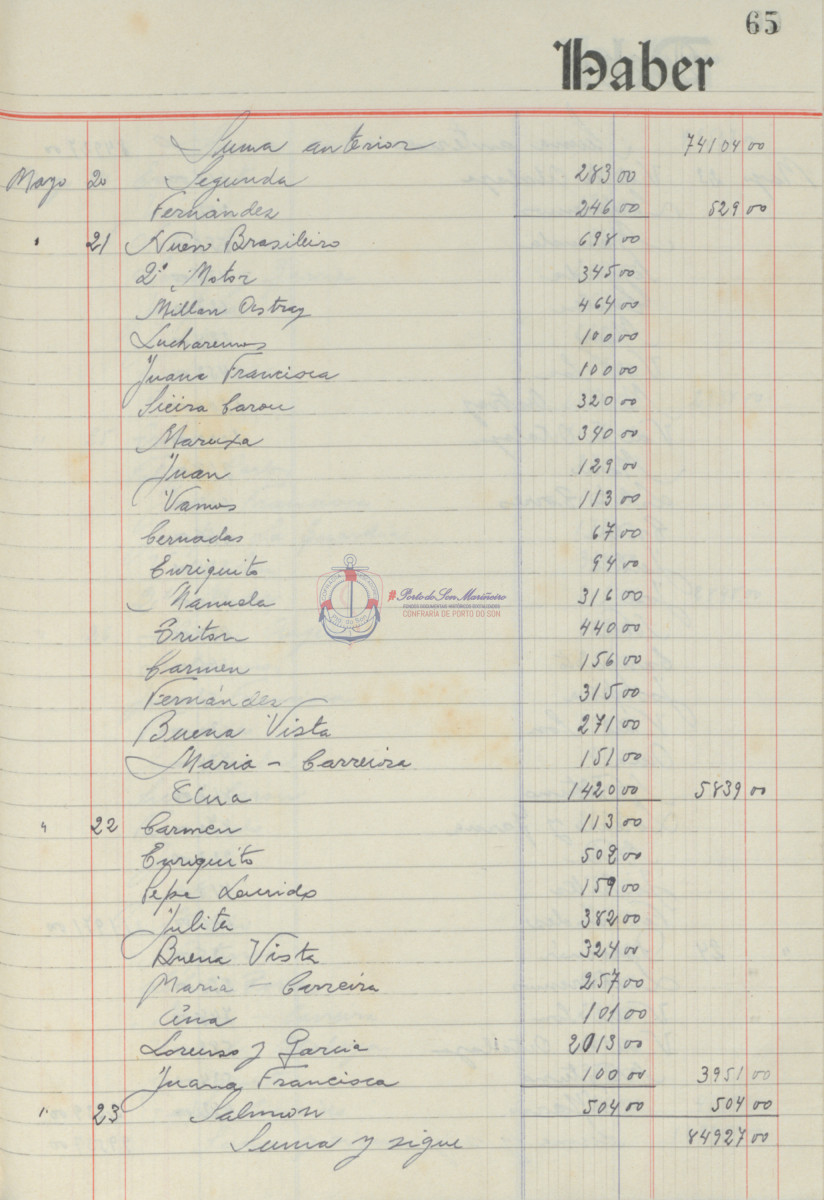 65
Haber
Suma anterior 74104 00
Mayo 20 Segunda 283 00
Fernández 246 00 529 00
" 21 Nuevo Brasileiro 698 00
2º Motor 345 00
Millan Astray 464 00
Lucharemos 100 00
Juana Francisca 100 00
Sieira Carou 320 00
Maruxa 340 00
Juan 129 00
Vamos 113 00
Cernadas 67 00
Enriquito 94 00
Manuela 316 00
Triton 440 00
Carmen 156 00
Fernández 315 00
Buena Vista 271 00
Maria - Carreira 151 00
1420 00 5839 00
" 22 Carmen 113 00
Enriquito 502 00
Pepe Lourido 159 00
Julita 382 00
Buena Vista 324 00
Maria - Carreira 257 00
101 00
Lorenzo y Garcia 2013 00
Juana Francisca 100 00 3951 00
" 23 Salmon 504 00 504 00
Suma y sigue 84927 00
Porto do Son Mariñeiro
CONFRARÍA DE PORTO DO SON